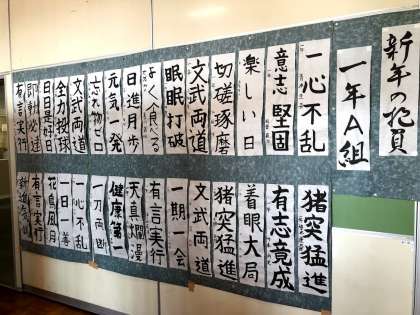 新年の抱負
一年A組
一心不乱
意志堅固
楽しい日
切磋琢磨
文武両道
眠眠打破
よく食べる
日進月歩
元気一発
忘れ物ゼロ
文武両道
全力投球
日日是好日
即執必達
有言実行
猪突猛進
有志竟成
着眼大局
猪突猛進
文武両道
一期一会
有言実行
天真爛漫
健康第一
一刀両断
一心不乱
一日一善
花鳥風月
有言実行